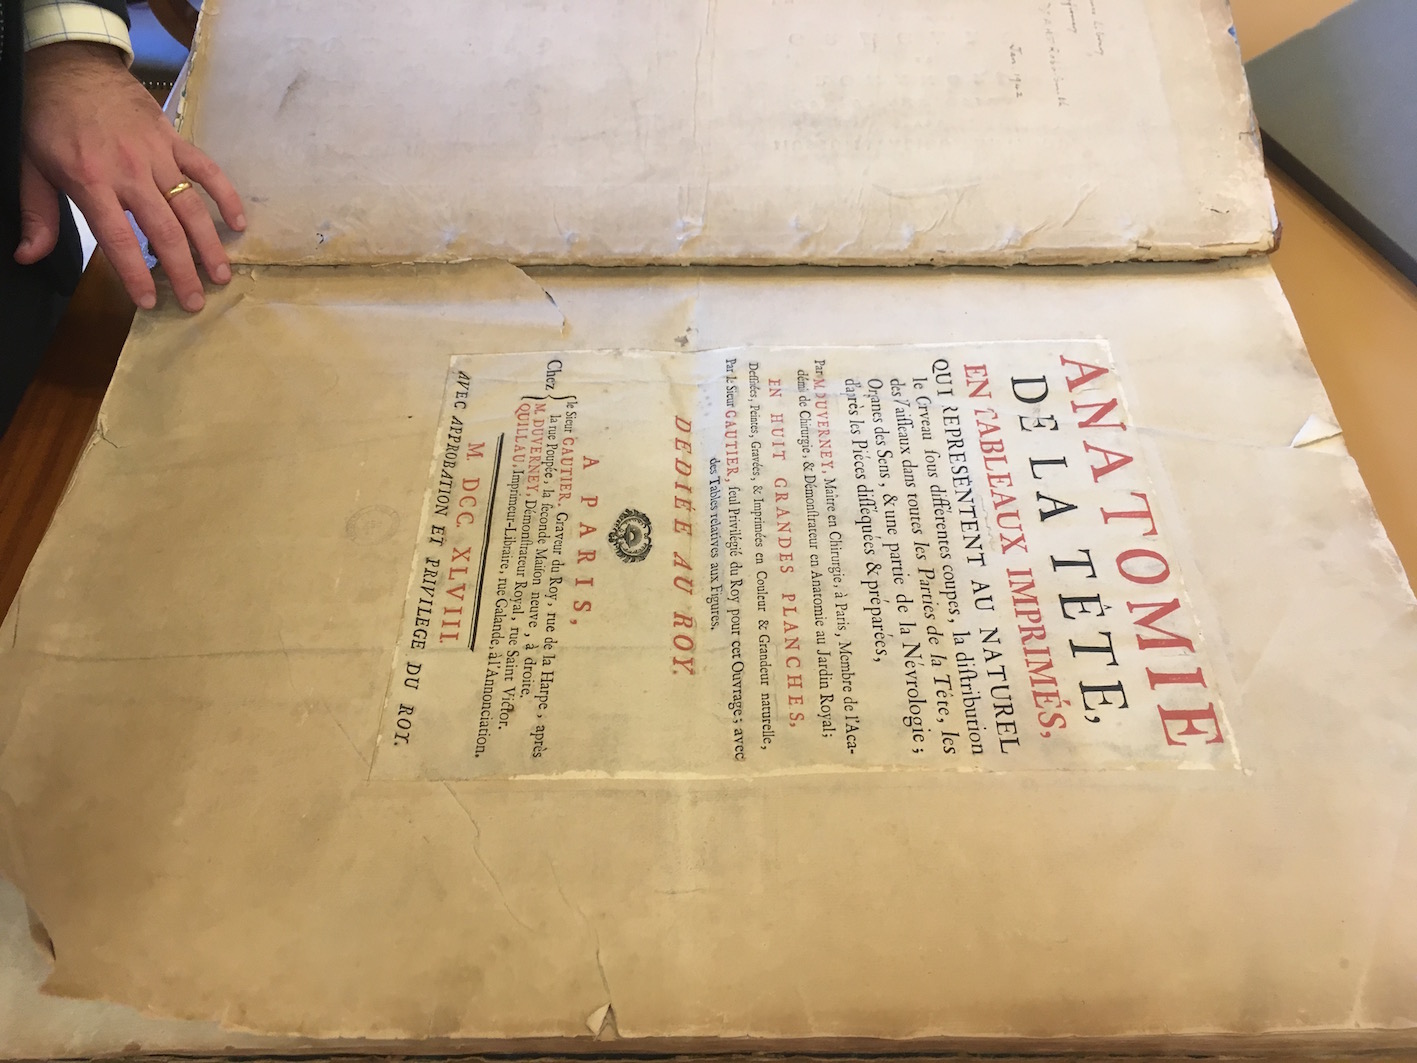 ANATOMIE
DE LA TÊTE,
EN TABLEAUX IMPRIMÉS,
QUI REPRÉSENTENT AU NATUREL
le Cerveau ſous différentes coupes, la diſtribution
des Vaiſſeaux dans toutes les Parties de la Tête, les
Organes des Sens, & une partie de la Névrologie;
d'après les Piéces diſſequées & préparées,
Par M. DUVERNEY, Maître en Chirurgie, à Paris, Membre de l'Aca-
démie de Chirurgie, & Démonſtrateur en Anatomie au Jardin Royal;
EN HUIT GRANDES PLANCHES,
Deſſinées, Peintes, Gravées, & Imprimées en Couleur & Grandeur naturelle,
Par le Sieur GAUTIER, ſeul Privilégié du Roy pour cet Ouvrage; avec
des Tables relatives aux Figures.
DEDIÉE AU ROY.
A PARIS,
Chez { le Sieur GAUTIER, Graveur du Roy, rue de la Harpe, après
la rue Poupée, la ſeconde Maiſon neuve, à droite.
M. DUVERNEY, Démonſtrateur Royal, rue Saint Victor.
QUILLAU, Imprimeur-Libraire, rue Galande, à l'Annonciation.
M. DCC. XLVIII.
AVEC APPROBATION ET PRIVILEGE DU ROY.
Jan 1942